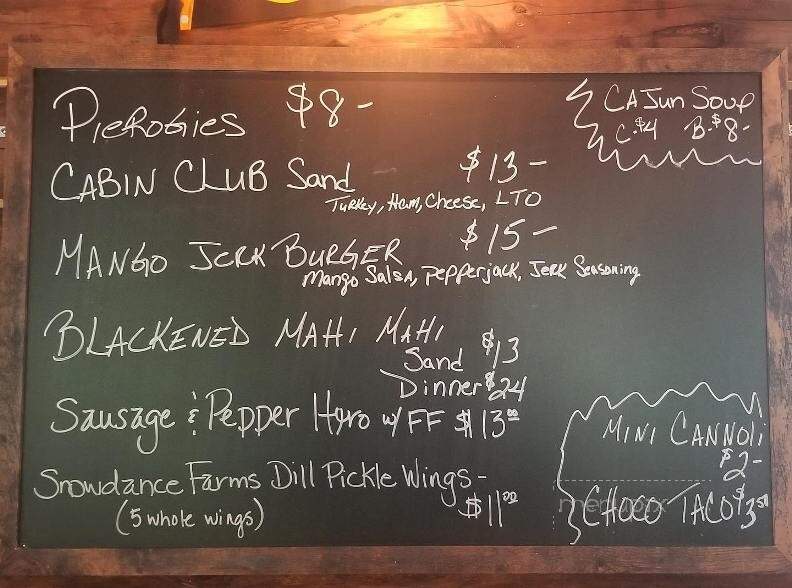 PIEROGIES $8-
CAJUN SOUP
C-$4 B-$8-
CABIN CLUB Sand $13-
Turkey, Ham, Cheese, LTO
MANGO JERK BURGER $15-
Mango Salsa, Pepperjack, Jerk Seasoning
BLACKENED MAHI MAHI
Sand $13
Dinner $24
Sausage & Pepper Hyro w/ FF $13.00
Snowdance Farms Dill Pickle Wings-
(5 whole wings) $11.00
MINI CANNOLI
$2-
CHOCO TACO $3.50
menupix